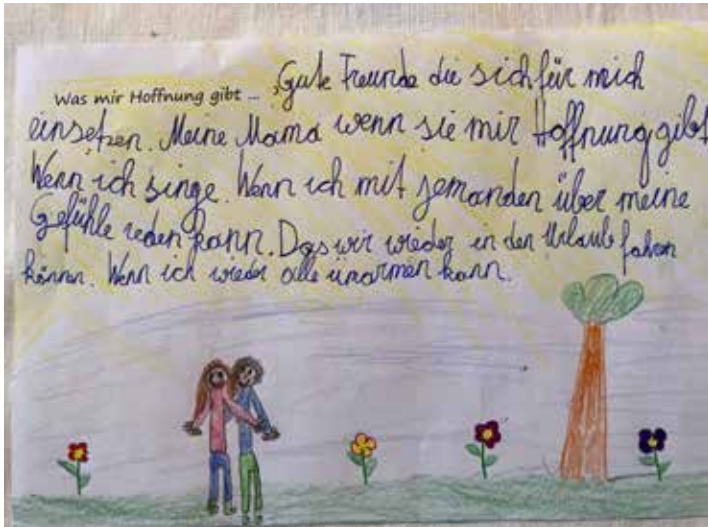 Was mir Hoffnung gibt ... Gute Freunde die sich für mich
einsetzen. Meine Mama wenn sie mir Hoffnung gibt
Wenn ich singe. Wenn ich mit jemanden über meine
Gefühle reden kann. Das wir wieder in den Urlaub fahren
können. Wenn ich wieder alle umarmen kann.